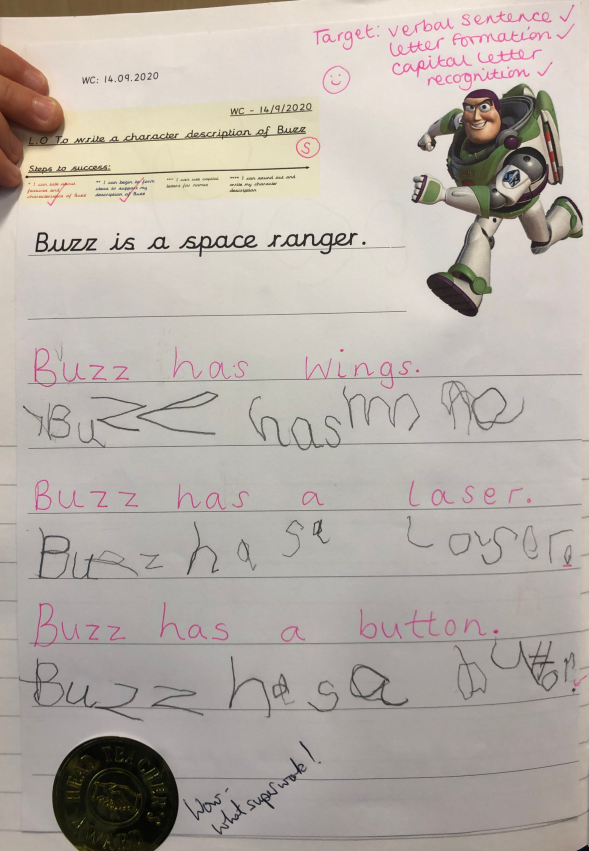 Target: verbal sentence ✓
letter formation ✓
capital letter
recognition ✓
WC: 14.09.2020
WC - 14/9/2020
L.O To write a character description of Buzz
S
Steps to success:
* I can talk about features and characteristics of Buzz
** I can begin to form ideas to support my description of Buzz
*** I can use capital letters for names
**** I can sound out and write my character description
Buzz is a space ranger.
Buzz has wings.
Buzz has
Buzz has a laser.
Buzz has a Lowser.
Buzz has a button.
Buzz has a button.
HEAD TEACHER'S AWARD
Wow-
what super work!